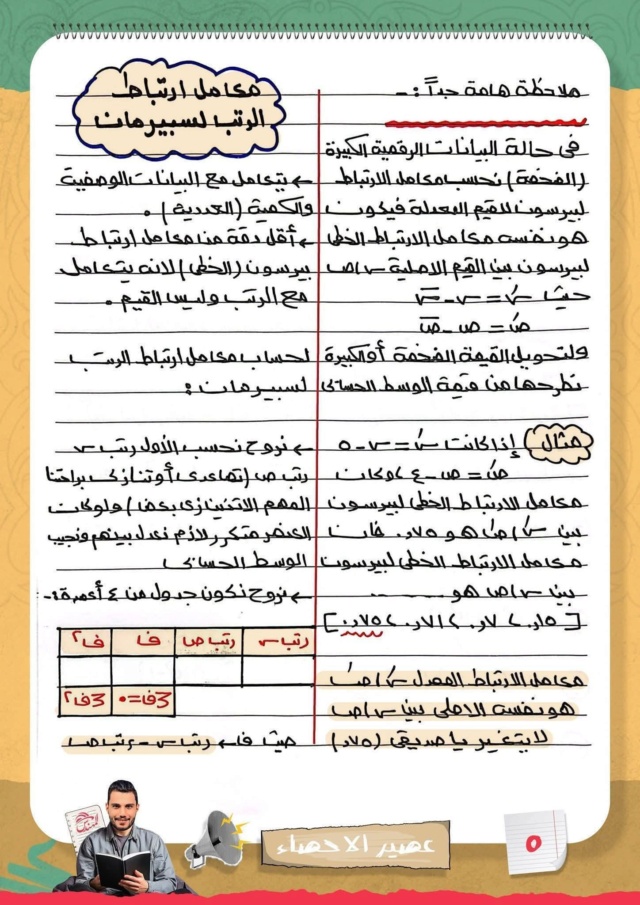 ملاحظة هامة جداً :-
في حالة البيانات الرقمية الكبيرة
(الضخمة) نحسب معامل الارتباط
لبيرسون للقيم المعدلة فيكون
هو نفسه معامل الارتباط الخطى
لبيرسون بين القيم الاصلية س ، ص
حيث سَ = س - س̅
صَ = ص - ص̅
ولتحويل القيمة الضخمة أو الكبيرة
نطرحها من قيمة الوسط الحسابى
مثال إذا كانت سَ = س - ٥
صَ = ص - ٤ وكان
معامل الارتباط الخطى لبيرسون
بين سَ ، صَ هو ٧٥,٠ فإن
معامل الارتباط الخطى لبيرسون
بين س ، ص هو ........
[ ٠,١٥ ، ٠,٧ ، ٠,٧١ ، ٠,٧٥ ]
معامل الارتباط المعدل سَ ، صَ
هو نفسه الاصلى بين س ، ص
لا يتغير يا صديقى (٠,٧٥)
معامل ارتباط
الرتب لسبيرمان
← يتعامل مع البيانات الوصفية
والكمية (العددية) .
← أقل دقة من معامل ارتباط
بيرسون (الخطى) لانه يتعامل
مع الرتب وليس القيم .
لحساب معامل ارتباط الرتب
لسبيرمان :
← نروح نحسب الأول رتب س
رتب ص (تصاعدى أو تنازلى براحتنا
المهم الاتنين زى بعض) ولو كان
العنصر متكرر لازم نعدل بينهم ونجيب
الوسط الحسابى
← نروح نكون جدول من ٤ أعمدة :-
رتب س رتب ص ف ف٢
مجـ ف = ٠ مجـ ف٢
حيث ف ← رتب س - رتب ص
عصير الاحصاء
٥